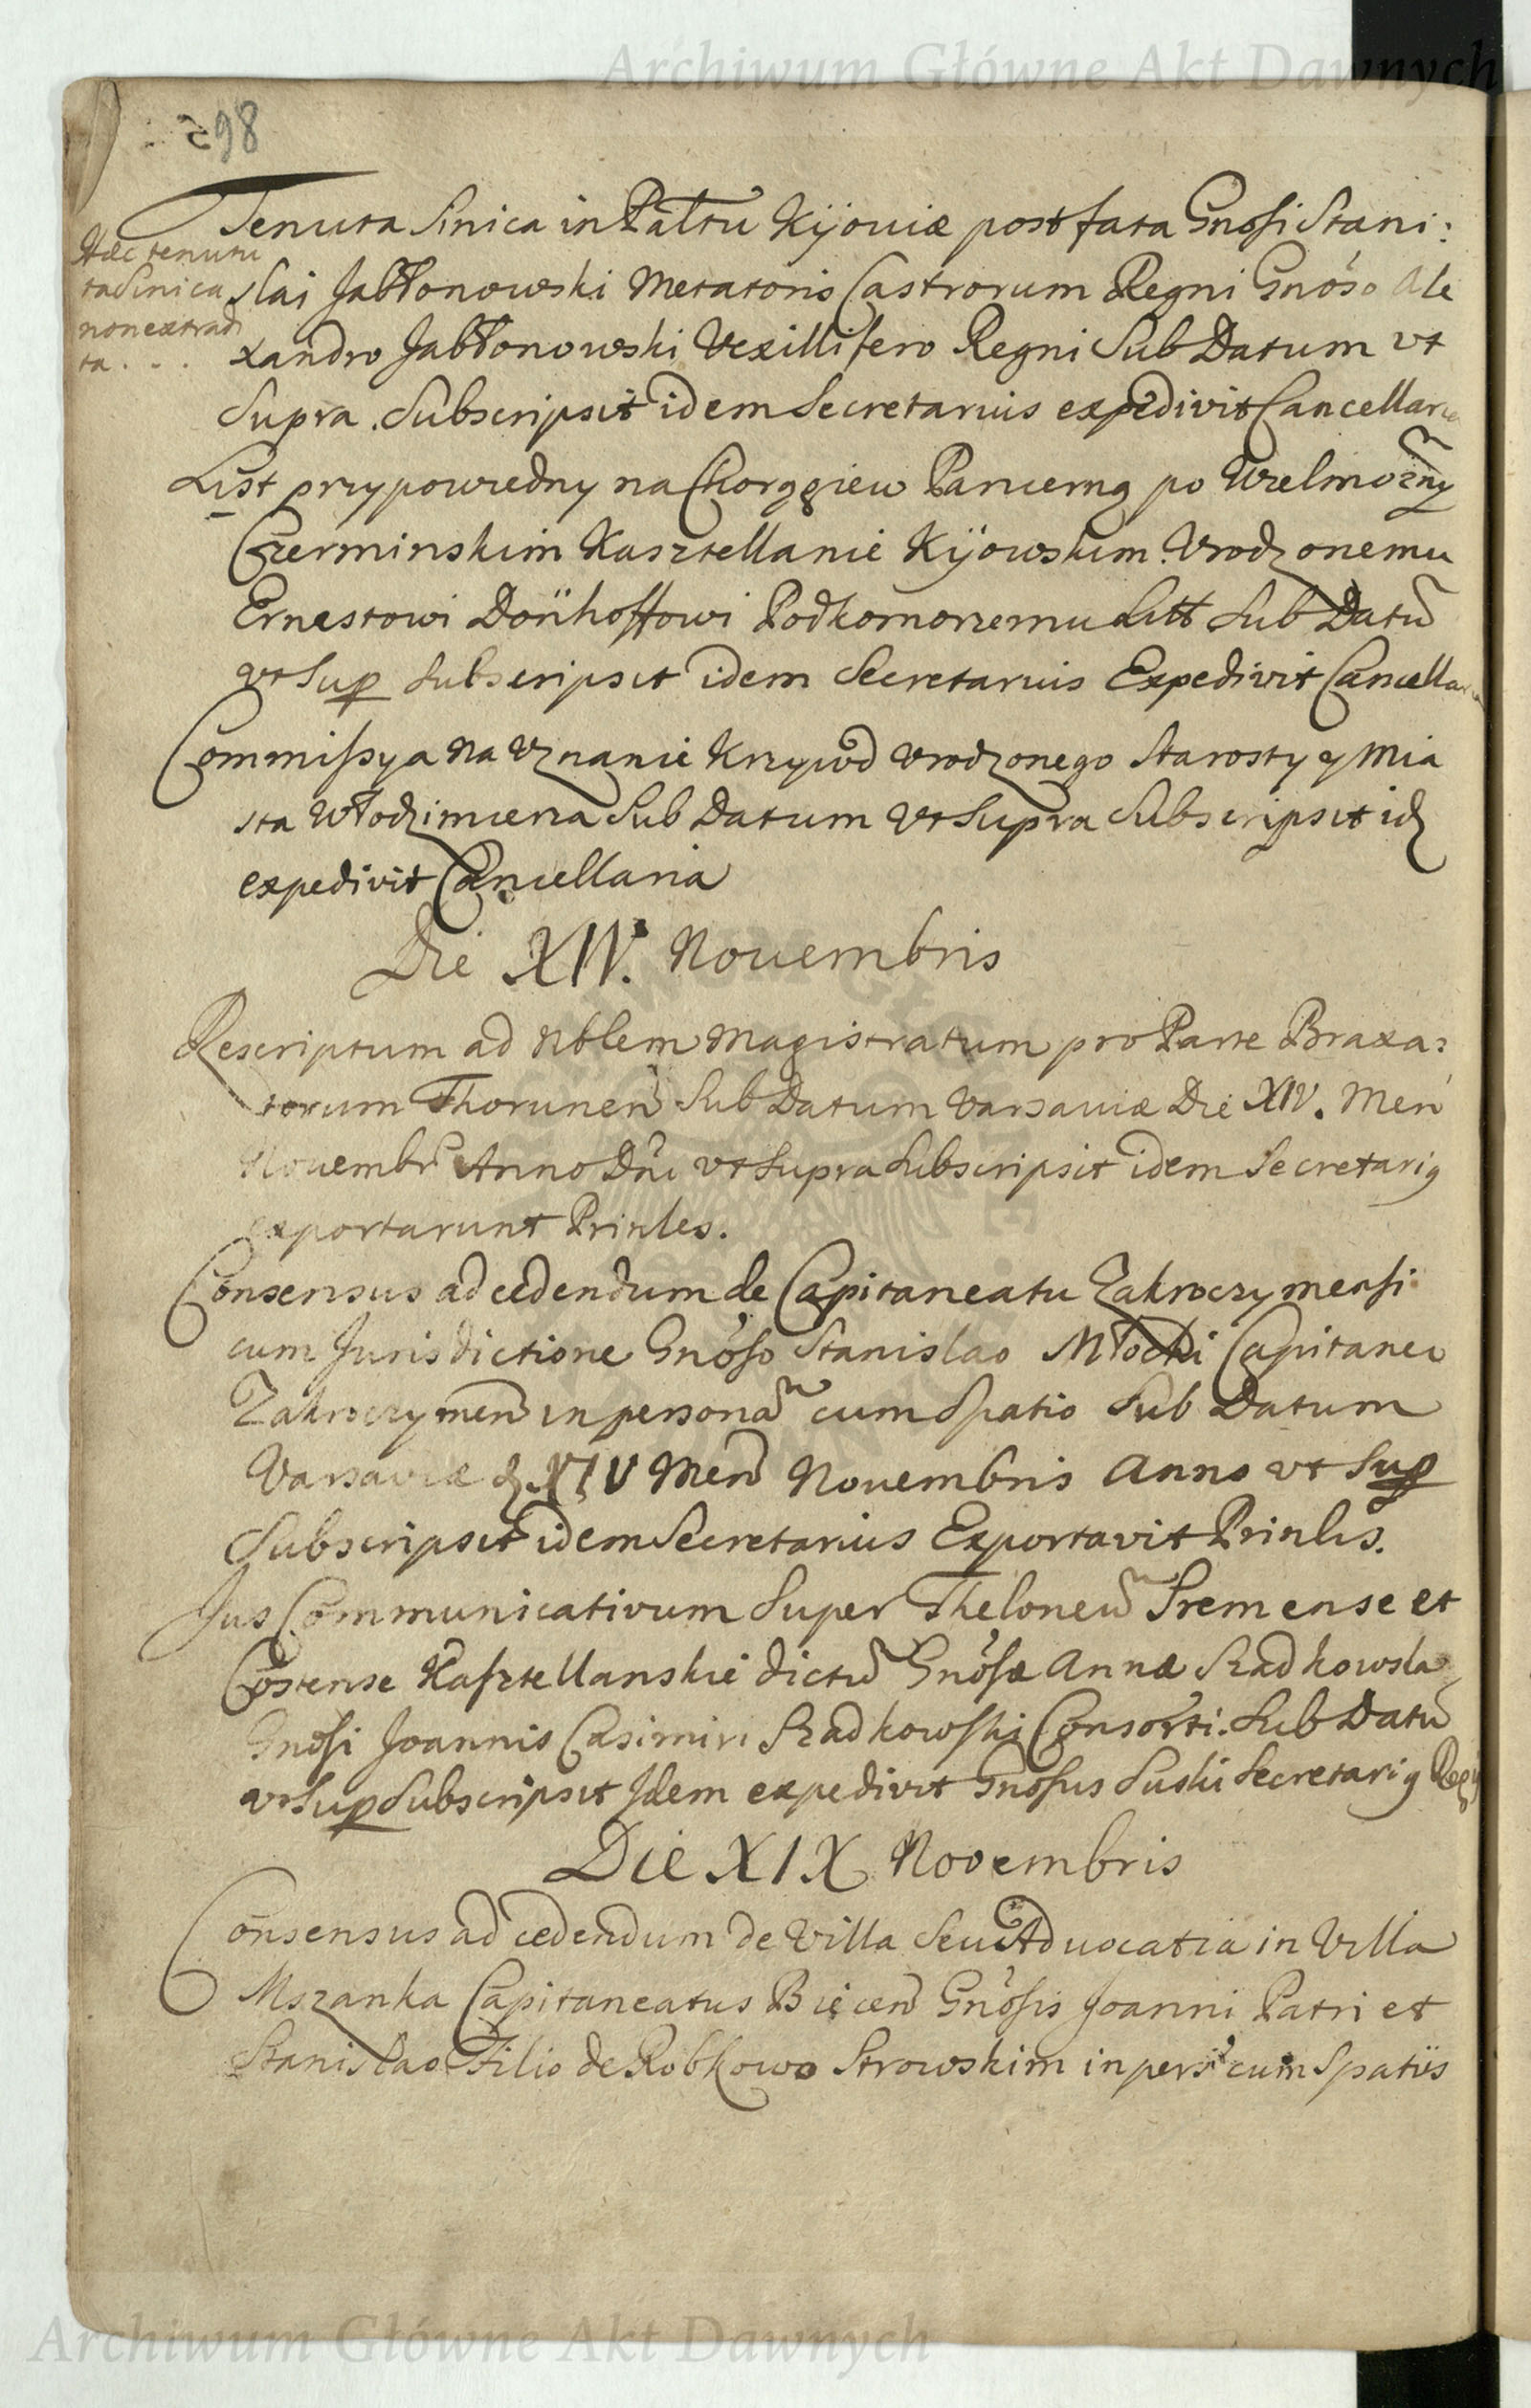 Archiwum Główne Akt Dawnych
598
Tenuta Sinica in Pal̃tu Kijoviæ post fata Gnosi Stani:
slai Jabłonowski Metatoris Castrorum Regni Gnoso Ale
xandro Jabłonowski Vexillifero Regni Sub Datum vt
Supra. Subscripsit idem Secretarius expedivit Cancellaria
Hæc tenuta
ta Sinica
non extradi
ta . . .
List przypowiedny na Chorągiew Pancerną po Wielmożnỹ
Czerminskim Kasztellanie Kijowskim. Vrodzonemu
Ernestowi Dönhoffowi Podkomorzemu Litt Sub Datũ
vt Sup Subscripsit idem Secretarius Expedivit Cancellaria
Commissya Na Vznanie Krzywd Vrodzonego Starosty y Mia
sta Włodzimierza Sub Datum Vt Supra Subscripsit id
expedivit Cancellaria
Die XIV. Novembris
Rescriptum ad Nblem Magistratum pro Parte Braxa:
torum Thorunen Sub Datum Varsaviæ Die XIV. Men
Novembr Anno Dni vt Supra Subscripsit idem Secretariq
exportarunt Prinles.
Consensus ad cedendum de Capitaneatu Zakroczymensi
cum Jurisdictione Gnoso Stanislao Młocki Capitaneo
Zakroczymen in personã cum Spatio Sub Datum
Varsaviæ d XIV Men Novembris Anno vt Sup
Subscripsit idem Secretarius Exportavit Prinlis.
Jus Communicativum Super Theloneũ Sremense et
Costense Kasztellanskie dictũ Gnosæ Annæ Szadkowska
Gnosi Joannis Casimiri Szadkowski Consorti. Sub Datũ
vt Sup Subscripsit Idem expedivit Gnosus Suski Secretariq Reg
Die XIX Novembris
Consensus ad cedendum de Villa Seu Advocatia in Villa
Mszanka Capitaneatus Biecen Gnosis Joanni Patri et
Stanislao Filio de Robkowo Strowskim in pers cum Spatiis
Archiwum Główne Akt Dawnych